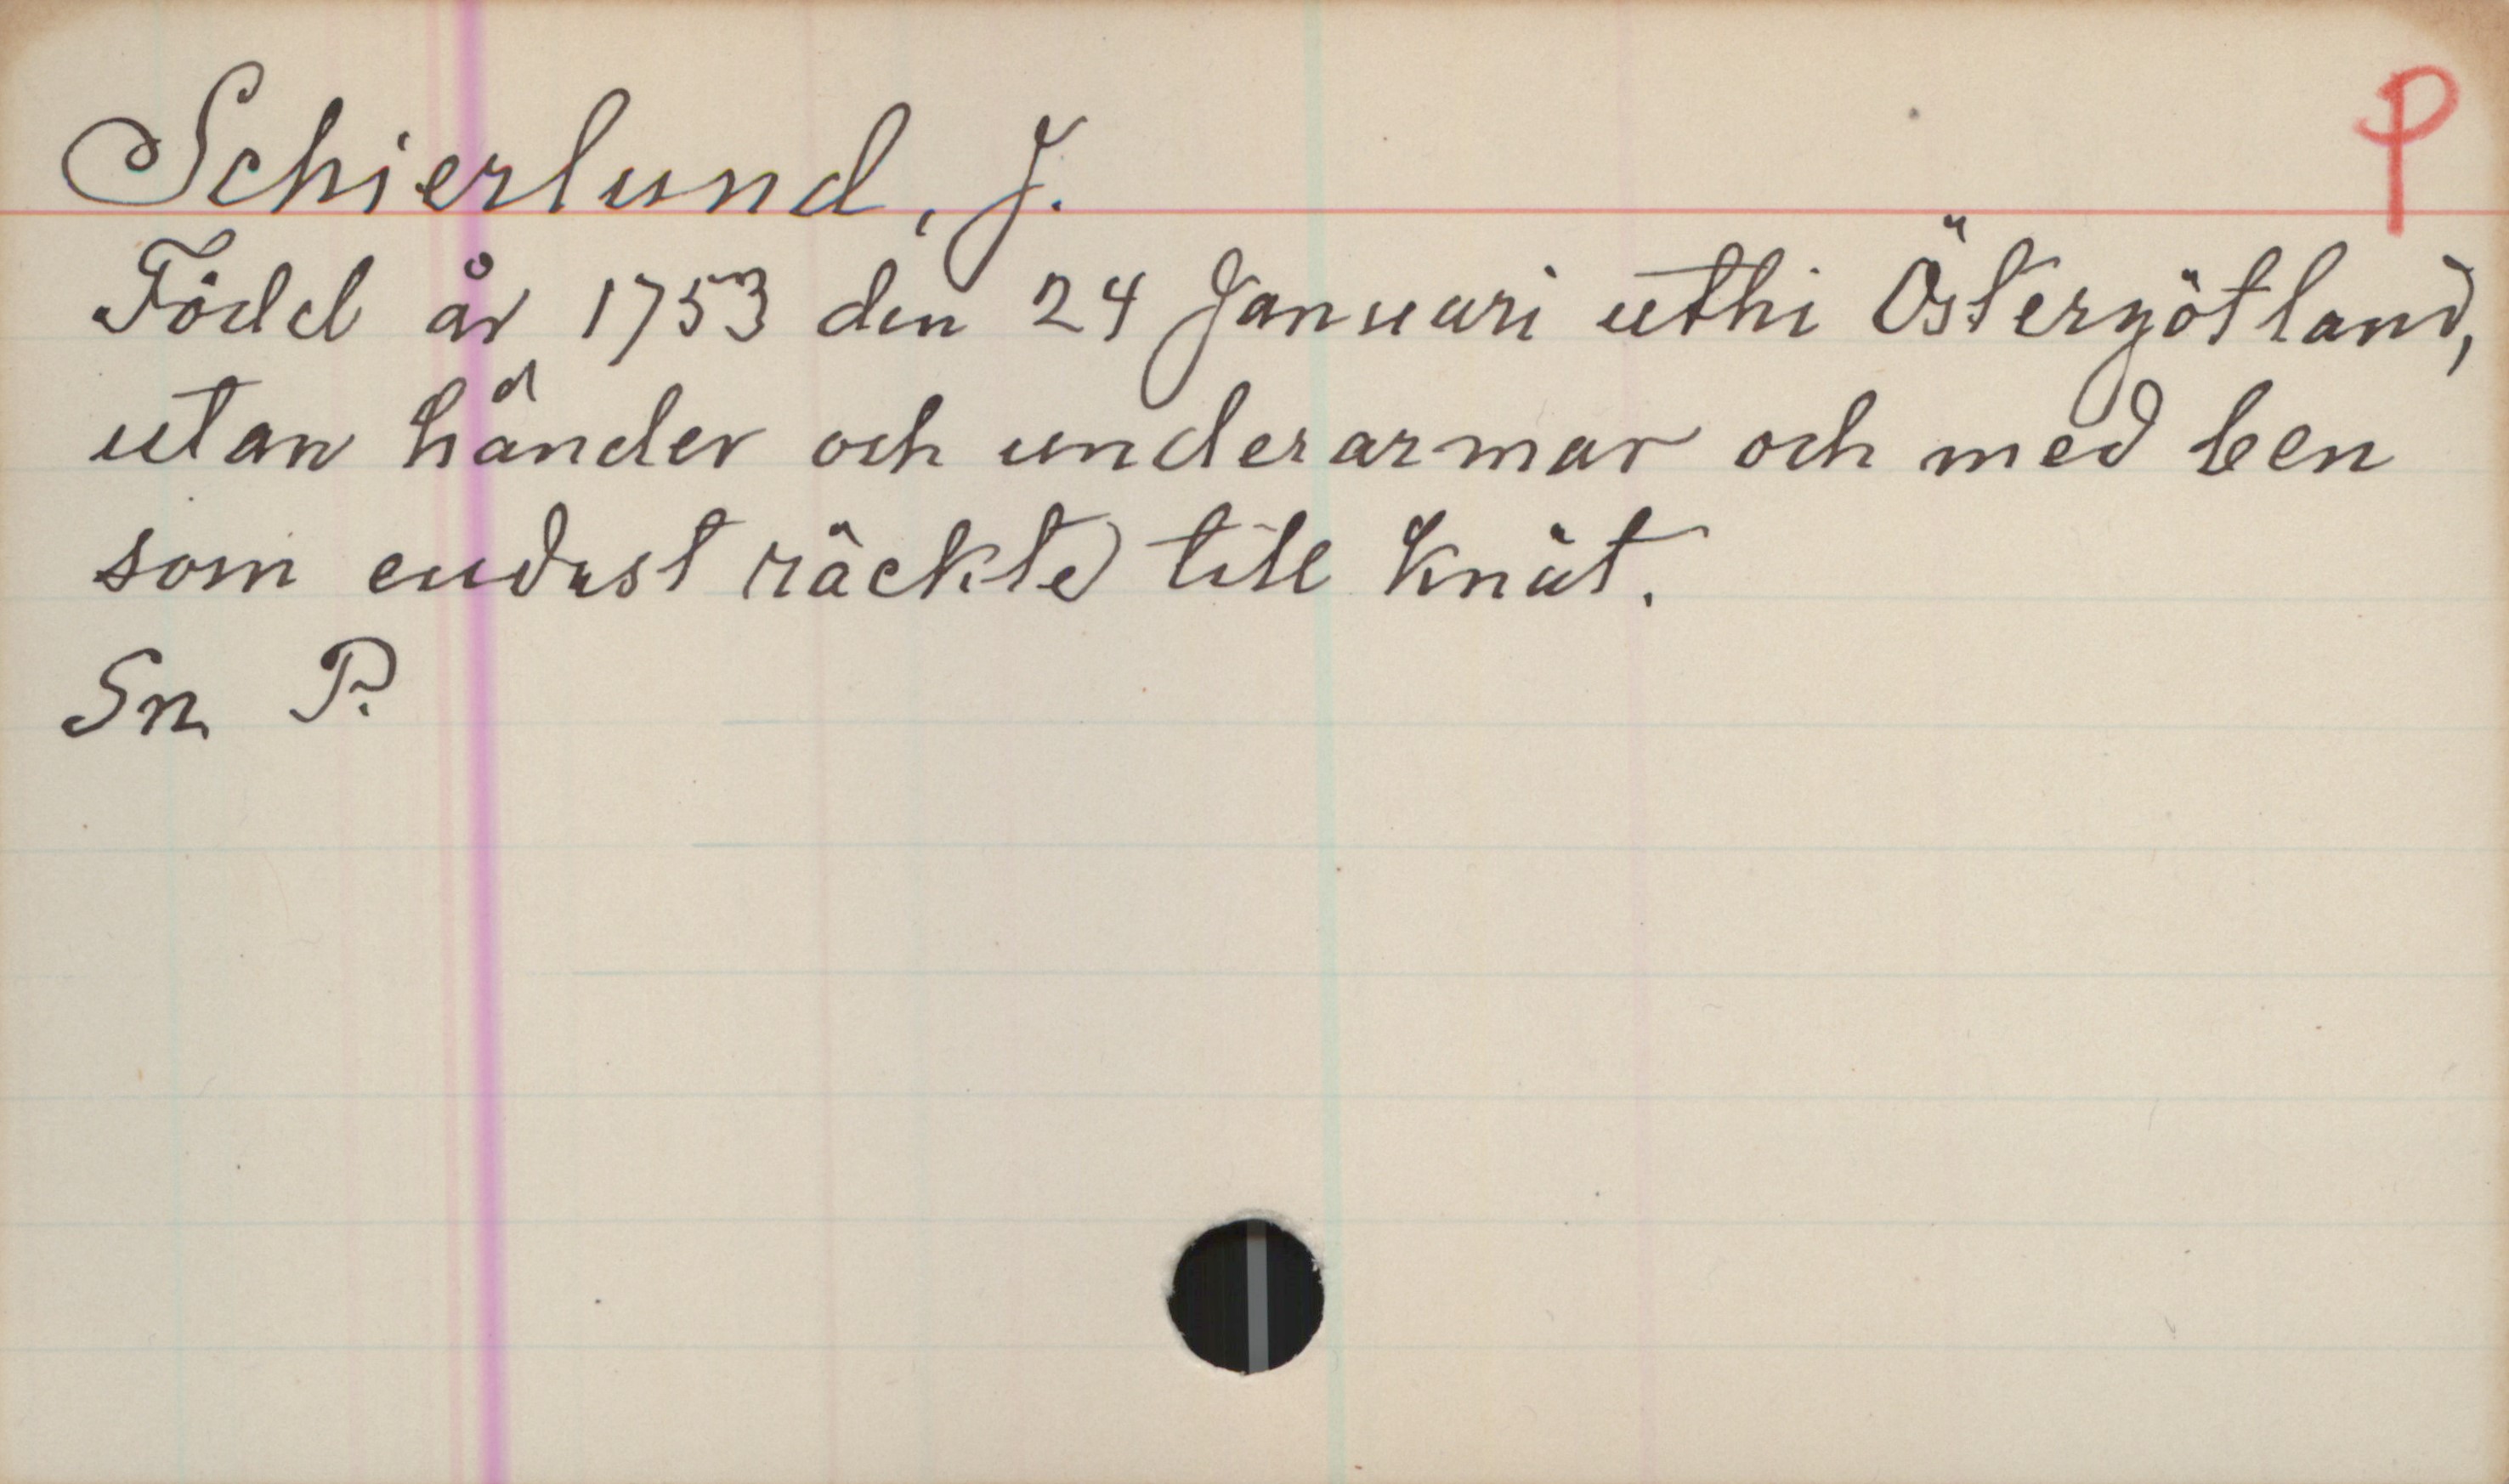 Schierlund, J.
P
Född år 1753 den 24 Januari uthi Östergötland,
utan händer och underarmar och med ben
som endast räckte till knät.
Sn. P.